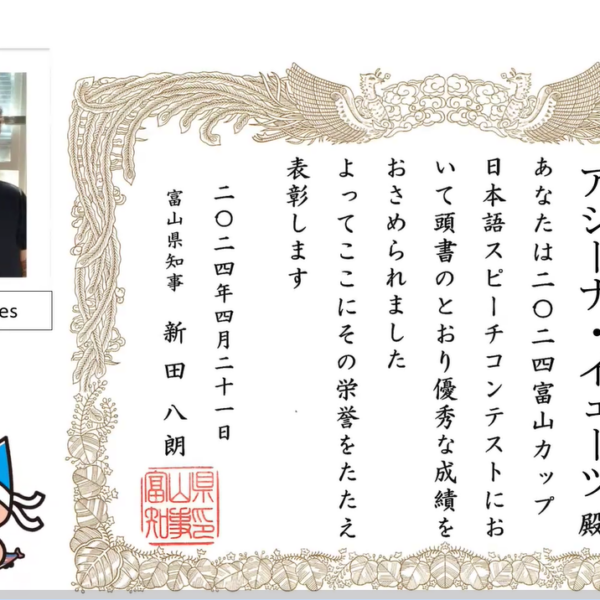 アシーナ・イェーツ 殿
あなたは二〇二四富山カップ
日本語スピーチコンテストにお
いて頭書のとおり優秀な成績を
おさめられました
よってここにその栄誉をたたえ
表彰します
二〇二四年四月二十一日
富山県知事 新田八朗
富山県
知事印
es